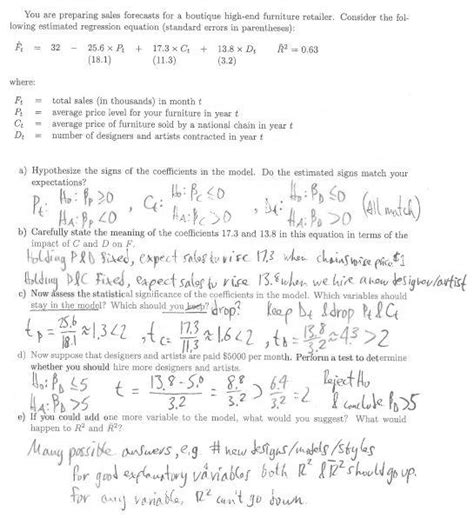 You are preparing sales forecasts for a boutique high-end furniture retailer. Consider the fol-
lowing estimated regression equation (standard errors in parentheses):
F̂t = 32 − 25.6 × Pt + 17.3 × Ct + 13.8 × Dt R̄² = 0.63
(18.1) (11.3) (3.2)
where:
Ft = total sales (in thousands) in month t
Pt = average price level for your furniture in year t
Ct = average price of furniture sold by a national chain in year t
Dt = number of designers and artists contracted in year t
a) Hypothesize the signs of the coefficients in the model. Do the estimated signs match your
expectations?
Pt: H₀: βP ≥ 0 , Ct: H₀: βC ≤ 0 , Dt: H₀: βD ≤ 0 (All match)
HA: βP < 0 HA: βC > 0 HA: βD > 0
b) Carefully state the meaning of the coefficients 17.3 and 13.8 in this equation in terms of the
impact of C and D on F.
Holding P&D fixed, expect sales to rise 17.3 when chains raise price $1
Holding P&C fixed, expect sales to rise 13.8 when we hire a new designer/artist
c) Now assess the statistical significance of the coefficients in the model. Which variables should
stay in the model? Which should you keep? drop? Keep Dt & drop Pt & Ct
tP = 25.6/18.1 ≈ 1.3 < 2 , tC = 17.3/11.3 ≈ 1.6 < 2 , tD = 13.8/3.2 ≈ 4.3 > 2
d) Now suppose that designers and artists are paid $5000 per month. Perform a test to determine
whether you should hire more designers and artists.
H₀: βD ≤ 5 t = 13.8 − 5.0 / 3.2 = 8.8/3.2 > 6.4/3.2 = 2 Reject H₀
HA: βD > 5 & conclude βD > 5
e) If you could add one more variable to the model, what would you suggest? What would
happen to R² and R̄²?
Many possible answers, e.g. # new designs/models/styles
For good explanatory variables both R² & R̄² should go up.
For any variable, R² can't go down.